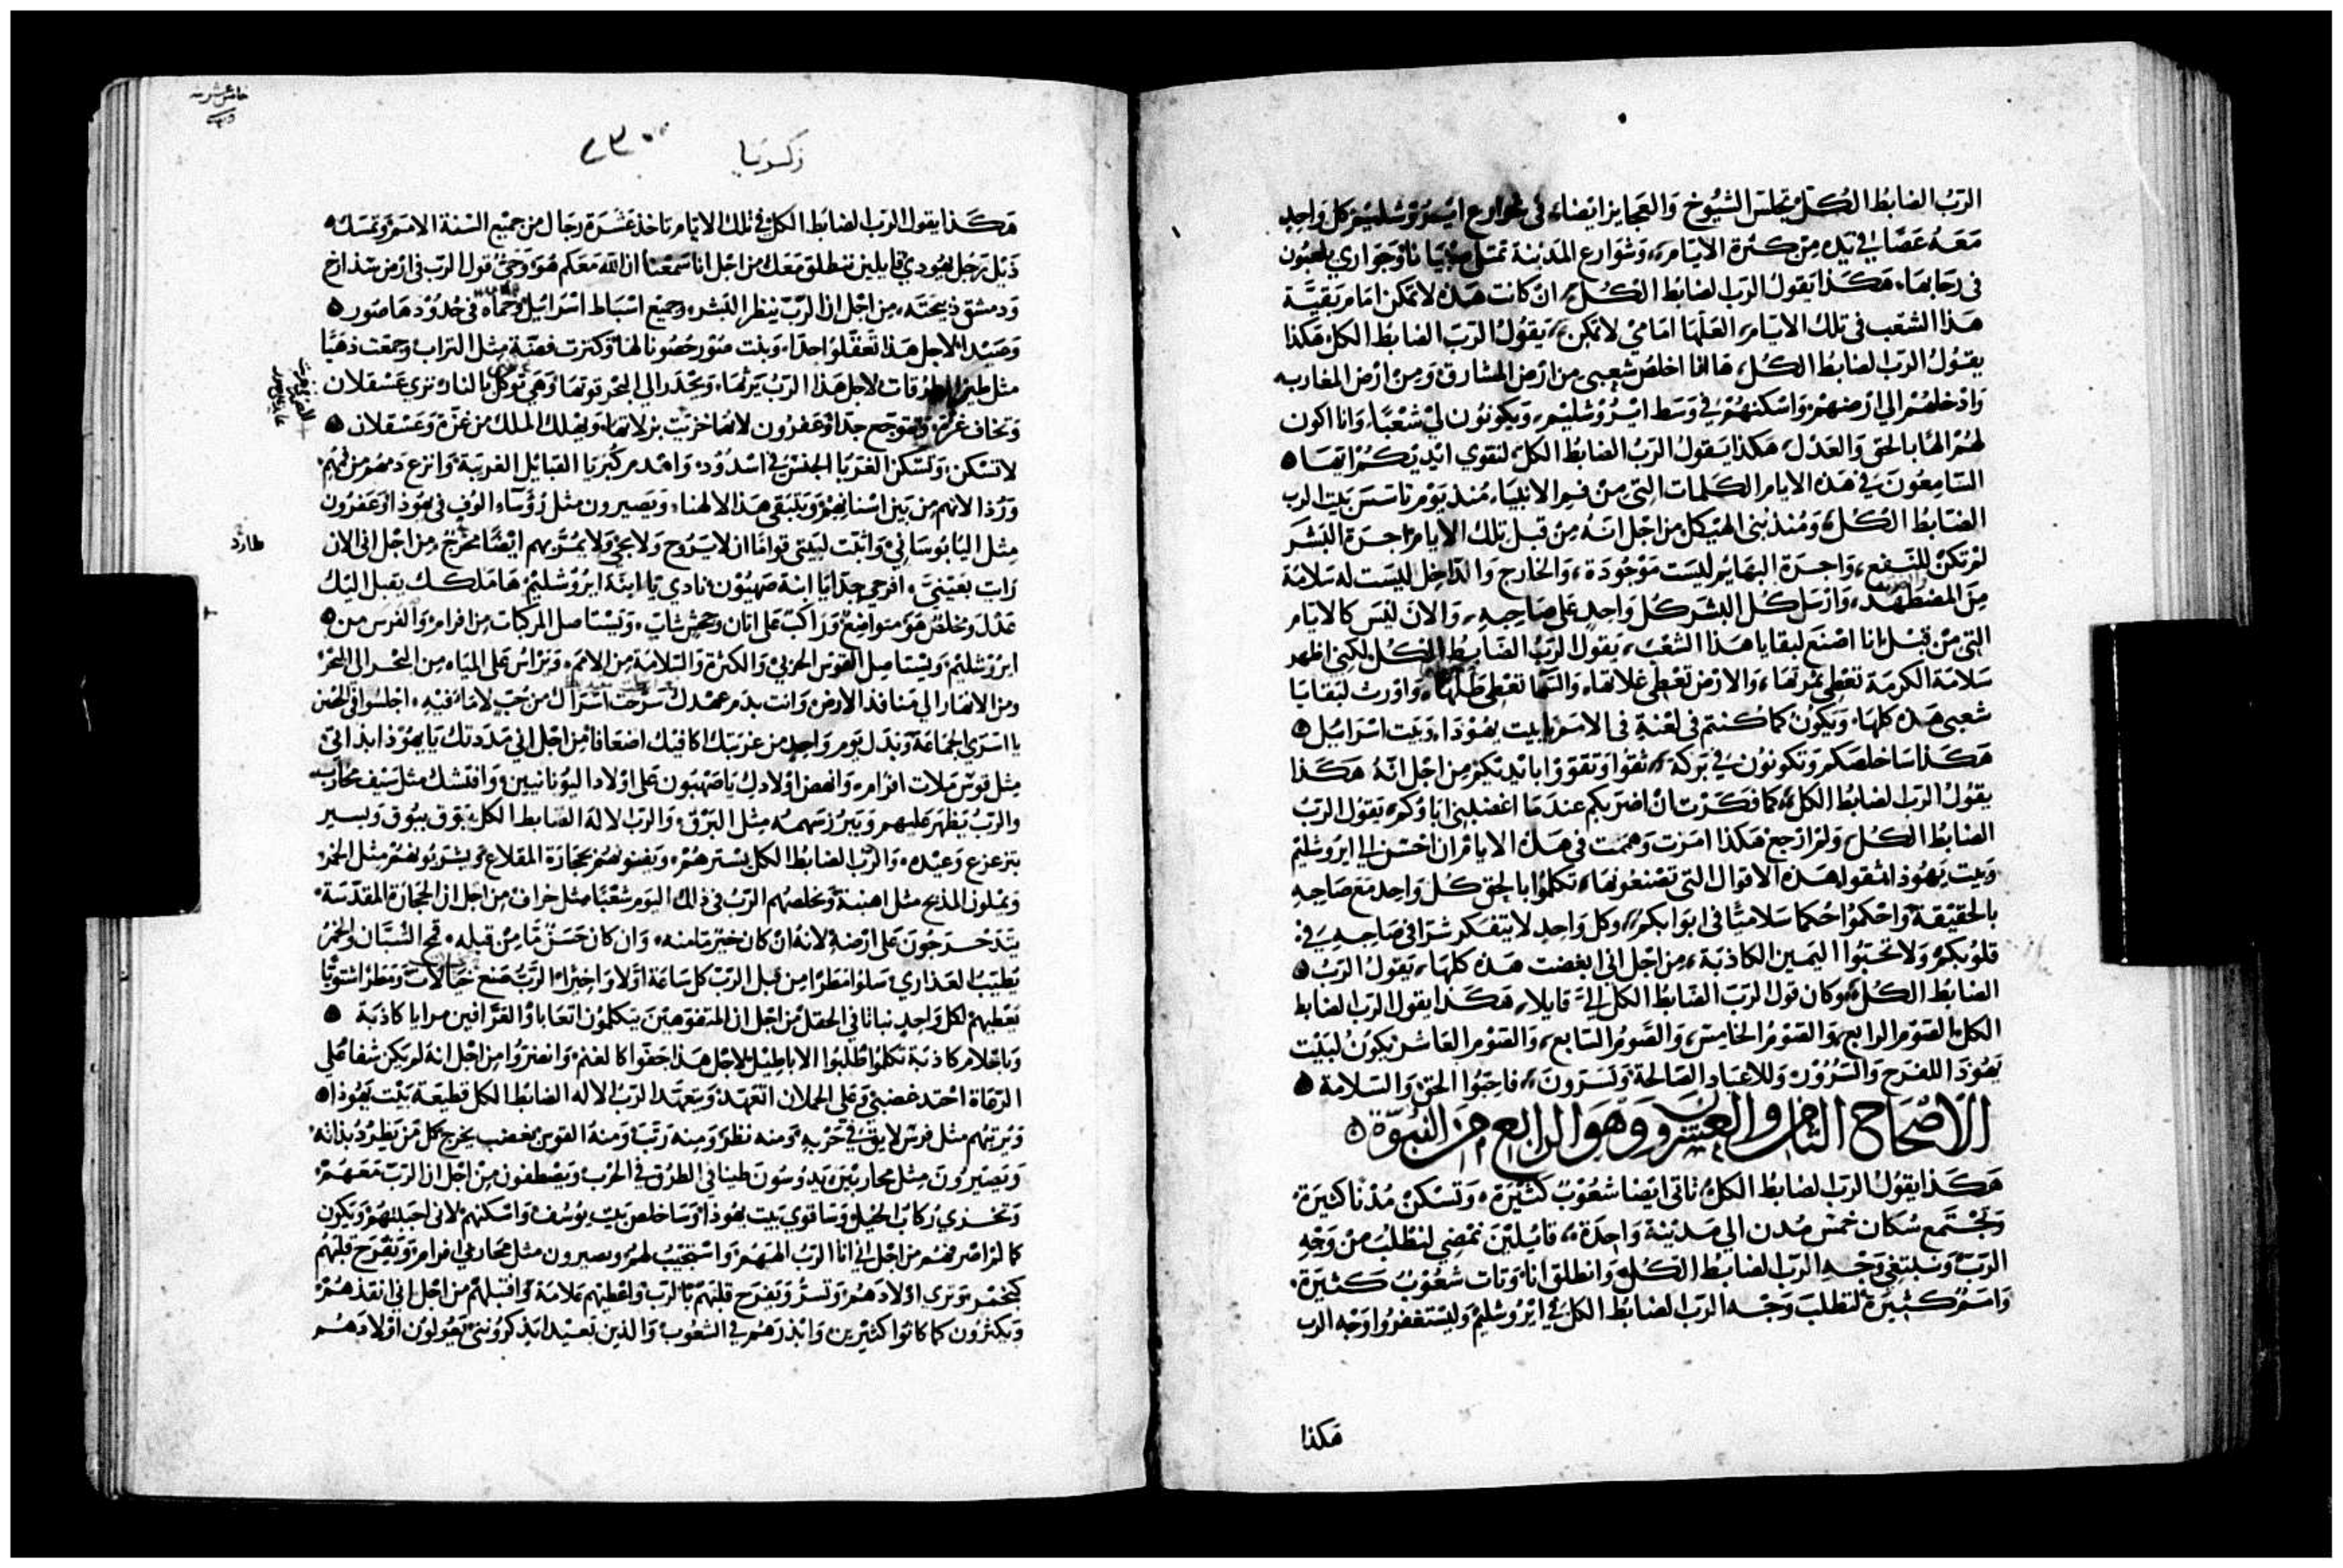 الرب الضابط الكل تجلس الشيوخ والعجايز ايضا، في شوارع ايروشليم كل واحد
معه عصا في يده من كثرة الايام، وشوارع المدينة تمتلي صبيانا وجواري يلعبون
في رحابها، هكذا يقول الرب الضابط الكل، ان كانت هذه لا تمكن امام بقية
هذا الشعب في تلك الايام، العلها امامي لا تمكن، يقول الرب الضابط الكل، هكذا
يقول الرب الضابط الكل، هاانا اخلص شعبي من ارض المشارق ومن ارض المغارب
وادخلهم الي ارضهم، واسكنهم في وسط ايروشليم، ويكونون لي شعبا، وانا اكون
لهم الها بالحق والعدل، هكذا يقول الرب الضابط الكل، لتقوي ايديكم ايها
السامعون في هذه الايام الكلمات التي من فم الانبياء، منذ يوم تاسس بيت الرب
الضابط الكل، ومنذ بني الهيكل من اجل انه من قبل تلك الايام اجرة البشر
لم تكن للنفع، واجرة البهايم ليست موجودة، والخارج والداخل ليست له سلامة
من المضطهد، وارسل كل البشر كل واحد علي صاحبه، والان ليس كالايام
التي من قبل انا اصنع لبقايا هذا الشعب، يقول الرب الضابط الكل لكني اظهر
سلامة الكرمة تعطي ثمرتها، والارض تعطي غلاتها، والسما تعطي طلها، واورث لبقايا
شعبي هذه كلها، ويكون كما كنتم في لعنة في الامم يا بيت يهوذا، وبيت اسراييل
هكذا ساخلصكم وتكونون في بركة، ثقوا وتقووا بايديكم من اجل انه هكذا
يقول الرب الضابط الكل، كما فكرت ان اضربكم عندما اغضبني اباوكم، يقول الرب
الضابط الكل ولم ارجع هكذا امرت وهممت في هذه الايام ان احسن الي ايروشليم
وبيت يهوذا ثقوا هذه الاقوال التي تصنعونها، تكلموا بالحق كل واحد مع صاحبه
بالحقيقة واحكموا حكما سلاميا في ابوابكم، وكل واحد لا يتفكر شرا في صاحبه في
قلوبكم ولا تحبوا اليمين الكاذبة، من اجل اني ابغضت هذه كلها، يقول الرب
الضابط الكل، وكان قول الرب الضابط الكل الي قايلا، هكذا يقول الرب الضابط
الكل، الصوم الرابع، والصوم الخامس، والصوم السابع، والصوم العاشر يكون لبيت
يهوذا للفرح والسرور، وللاعياد الصالحة، وتسرون، فاحبوا الحق والسلامة
الاصحاح الثامن والعشرون وهو الرابع من النبوة
هكذا يقول الرب الضابط الكل، تاتي ايضا شعوب كثيرة، وتسكن مدنا كثيرة
وتجتمع سكان خمس مدن الي مدينة واحدة، قايلين نمضي لنطلب من وجه
الرب ونبتغي وجه الرب الضابط الكل، وانطلق انا، وتات شعوب كثيرة
وامم كثيرة لتطلب وجه الرب الضابط الكل في ايروشليم وليستغفروا وجه الرب
هكذا
زكريا
هكذا يقول الرب الضابط الكل في تلك الايام تاخذ عشرة رجال من جميع السنة الامم، وتمسك
ذيل رجل يهودي قايلين ننطلق معك من اجل انا سمعنا ان الله معكم هو، وحي قول الرب في ارض سدراخ
ودمشق ذبيحته، من اجل ان الرب ينظر البشر، وجميع اسباط اسراييل وحماه في حدودها صور
وصيدا، لاجل هذا تعقلوا جدا، وبنت صور حصونا لها وكنزت فضة مثل التراب وجمعت ذهبا
مثل طين الطرقات لاجل هذا الرب يرثها، ويحدر الي البحر قوتها، وهي توكل بالنار، تري عسقلان
وتخاف غزة، وتتوجع جدا وعفرون لانها خزيت بزلاتها، ويهلك الملك من غزة وعسقلان
لا تسكن، وتسكن الغربا الجنس في اسدود، واهدم كبريا القبايل الغريبة، وانزع دمهم من فمهم
ورذالاتهم من بين اسنانهم، ويتبقي هذا لالهنا، ويصيرون مثل رؤساء الوف في يهوذا وعفرون
مثل اليابوساني، واثبت لبيتي قواما ان لا يروح ولا يجي ولا يمر بهم ايضا مخرج، من اجل اني الان
طارد
رايت بعيني، افرحي جدا يا ابنة صهيون، نادي يا ابنة ايروشليم، ها ملكك يقبل اليك
عدل ومخلص هو متواضع، وراكب علي اتان وجحش شاب، ويستاصل المركبات من افرام، والفرس من
ايروشليم، ويستاصل القوس الحربي، والكثرة والسلامة من الامم، ويراس علي المياه من البحر الي البحر
ومن الانهار الي منافذ الارض، وانت بدم عهدك سرحت اسراك من جب لا ماء فيه، اجلسوا في الحصن
يا اسري الجماعة، وبدل يوم واحد من غربتك اكافيك اضعافا، من اجل اني مددتك يا يهوذا بذاتي
مثل قوس ملات افرام، وانهض اولادك يا صهيون علي اولاد اليونانيين، وافتشك مثل سيف محارب
والرب يظهر عليهم، ويبرز سهمه مثل البرق، والرب الاله الضابط الكل يبوق ببوق ويسير
بتزعزع وعيده، والرب الضابط الكل يسترهم، ويفنونهم بحجارة المقلاع، ويشربونهم مثل الخمر
ويملون المذبح مثل اهنية، ويخلصهم الرب في ذلك اليوم شعبا مثل خراف، من اجل ان الحجارة المقدسة
يتدحرجون علي ارضه، لانه ان كان خير مامنه، وان كان حسن ما من قبله، قمح الشبان والخمر
تطيب العذاري، سلوا مطرا من قبل الرب كل ساعة اولا واخيرا، الرب صنع خيالات ومطر اشتويا
يعطيهم لكل واحد نباتا في الحقل، من اجل ان المتفوهين يتكلمون اتعابا والعرافين مرايا كاذبة
وباحلام كاذبة تكلموا، اطلبوا الاباطيل، لاجل هذا جفوا كالغنم، وانضروا من اجل انه لم يكن شفا، علي
الرعاة احتد غضبي، وعلي الحملان اتعهد، ويتعهد الرب الاله الضابط الكل قطيعه بيت يهوذا
ويرتبهم مثل فرس لايق في حربه، ومنه نظر، ومنه رتب، ومنه القوس بغضب يخرج كل من يطرد بذاته
ويصيرون مثل محاربين، يدوسون طينا في الطرق في الحرب ويصطفون من اجل ان الرب معهم
وتخزي ركاب الخيل، وساقوي بيت يهوذا، وساخلص بيت يوسف، واسكنهم لاني احببتهم، ويكون
كما لم ارفضهم، من اجل اني انا الرب الههم، واستجيب لهم، ويصيرون مثل محاربي افرام، ويفرح قلبهم
كبخمر، وتري اولادهم وتسر، ويفرح قلبهم بالرب، واعطيهم علامة، واقتبلهم من اجل اني انقذهم
ويكثرون كما كانوا كثيرين، وابذرهم في الشعوب، والذين بعيدا يذكرونني، يعولون اولادهم